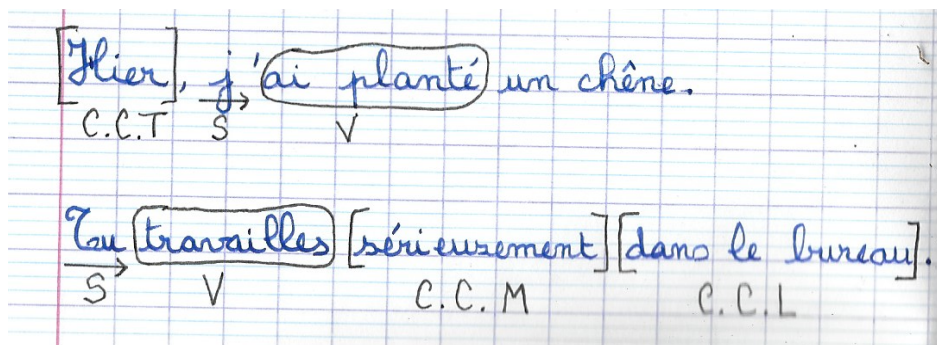 [Hier], j'ai planté un chêne.
C.C.T S V
Tu travailles [sérieusement] [dans le bureau].
S V C.C.M C.C.L